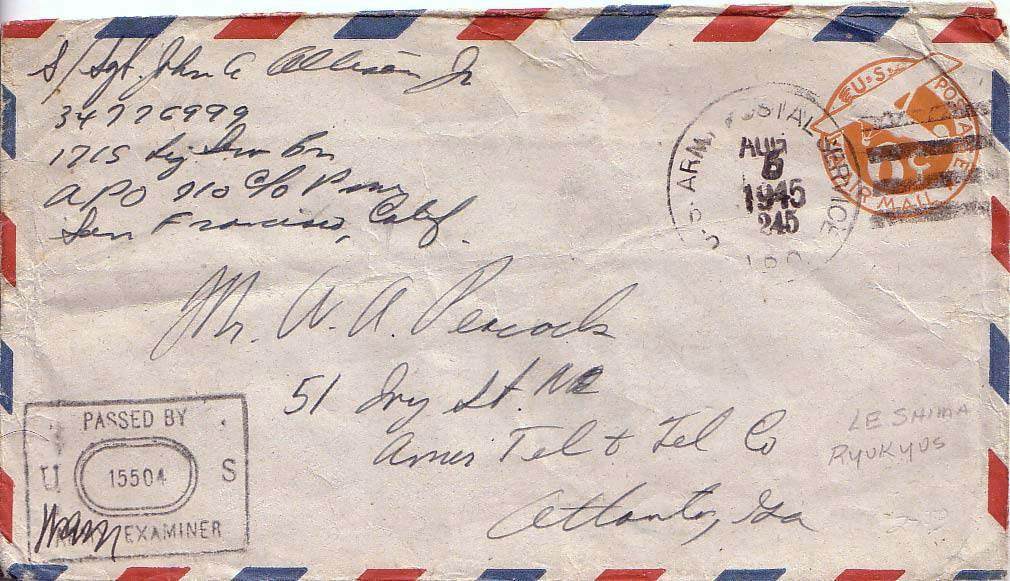 S/Sgt. John A Allison Jr
34776999
1715 Sig Serv Bn
APO 710 c/o P M
San Francisco, Calif.
U.S. ARMY POSTAL SERVICE
AUG
6
1945
245
APO
U.S. POSTAGE
6 C
AIR MAIL
Mr. W. A. Peacock
51 Ivy St. NE
Amer Tel & Tel Co
Atlanta, Ga
LE SHIMA
RYUKYUS
PASSED BY
U 15504 S
ARMY EXAMINER